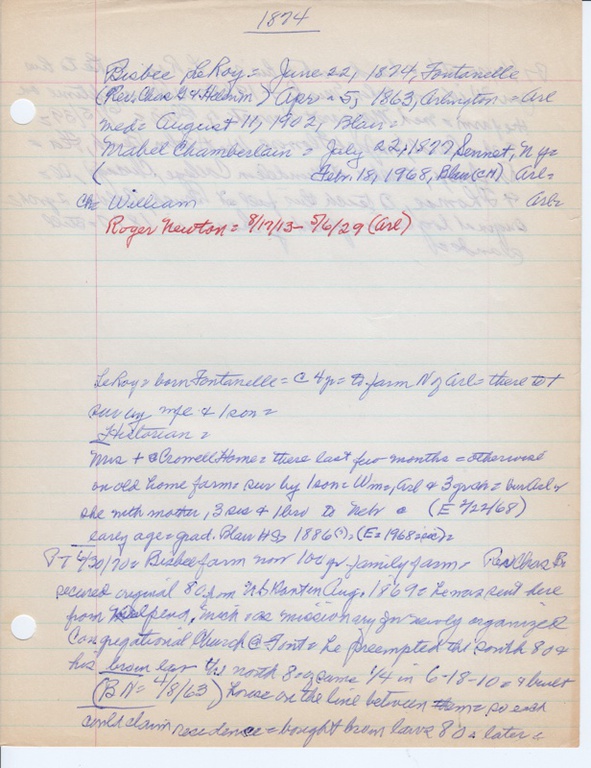 1874
Bisbee LeRoy = June 22, 1874, Fontanelle
(Rev. Chas G + Helen M.) Apr. 5, 1963, Arlington = Arl
med = August 11, 1902, Blair =
Mabel Chamberlain = July 22, 1877 Sennet, N.Y. =
( Febr 18, 1968, Blair (CH) Arl =
Ch: William Arl =
Roger Newton = 8/17/13 - 5/6/29 (Arl)
LeRoy = born Fontanelle = c 4 yr = to farm N of Arl = there to t
sur by wife & 1 son =
Historian =
Mrs + @ Crowell Home = there last few months = otherwise
on old home farm = sur by 1 son = Wm, Arl & 3 gr =
she with mother, 3 sis & 1 bro to Nebr @ (E 2/22/68)
early age = grad. Blair HS 1886 (?) (E = 1968) =
PT 4/30/70 = Bisbee farm now 100 yr family farm = Rev Chas B.
secured original 80 from in Aug. 1869 = He was sent here
from, as missionary for newly organized
Congregational Church @ Font = he preempted the south 80 &
his bro in law the north 80 of same 1/4 in 6-18-10 = & built
(BN = 4/8/63) house on the line between them = so each
could claim residence = bought bro in laws 80 a later =